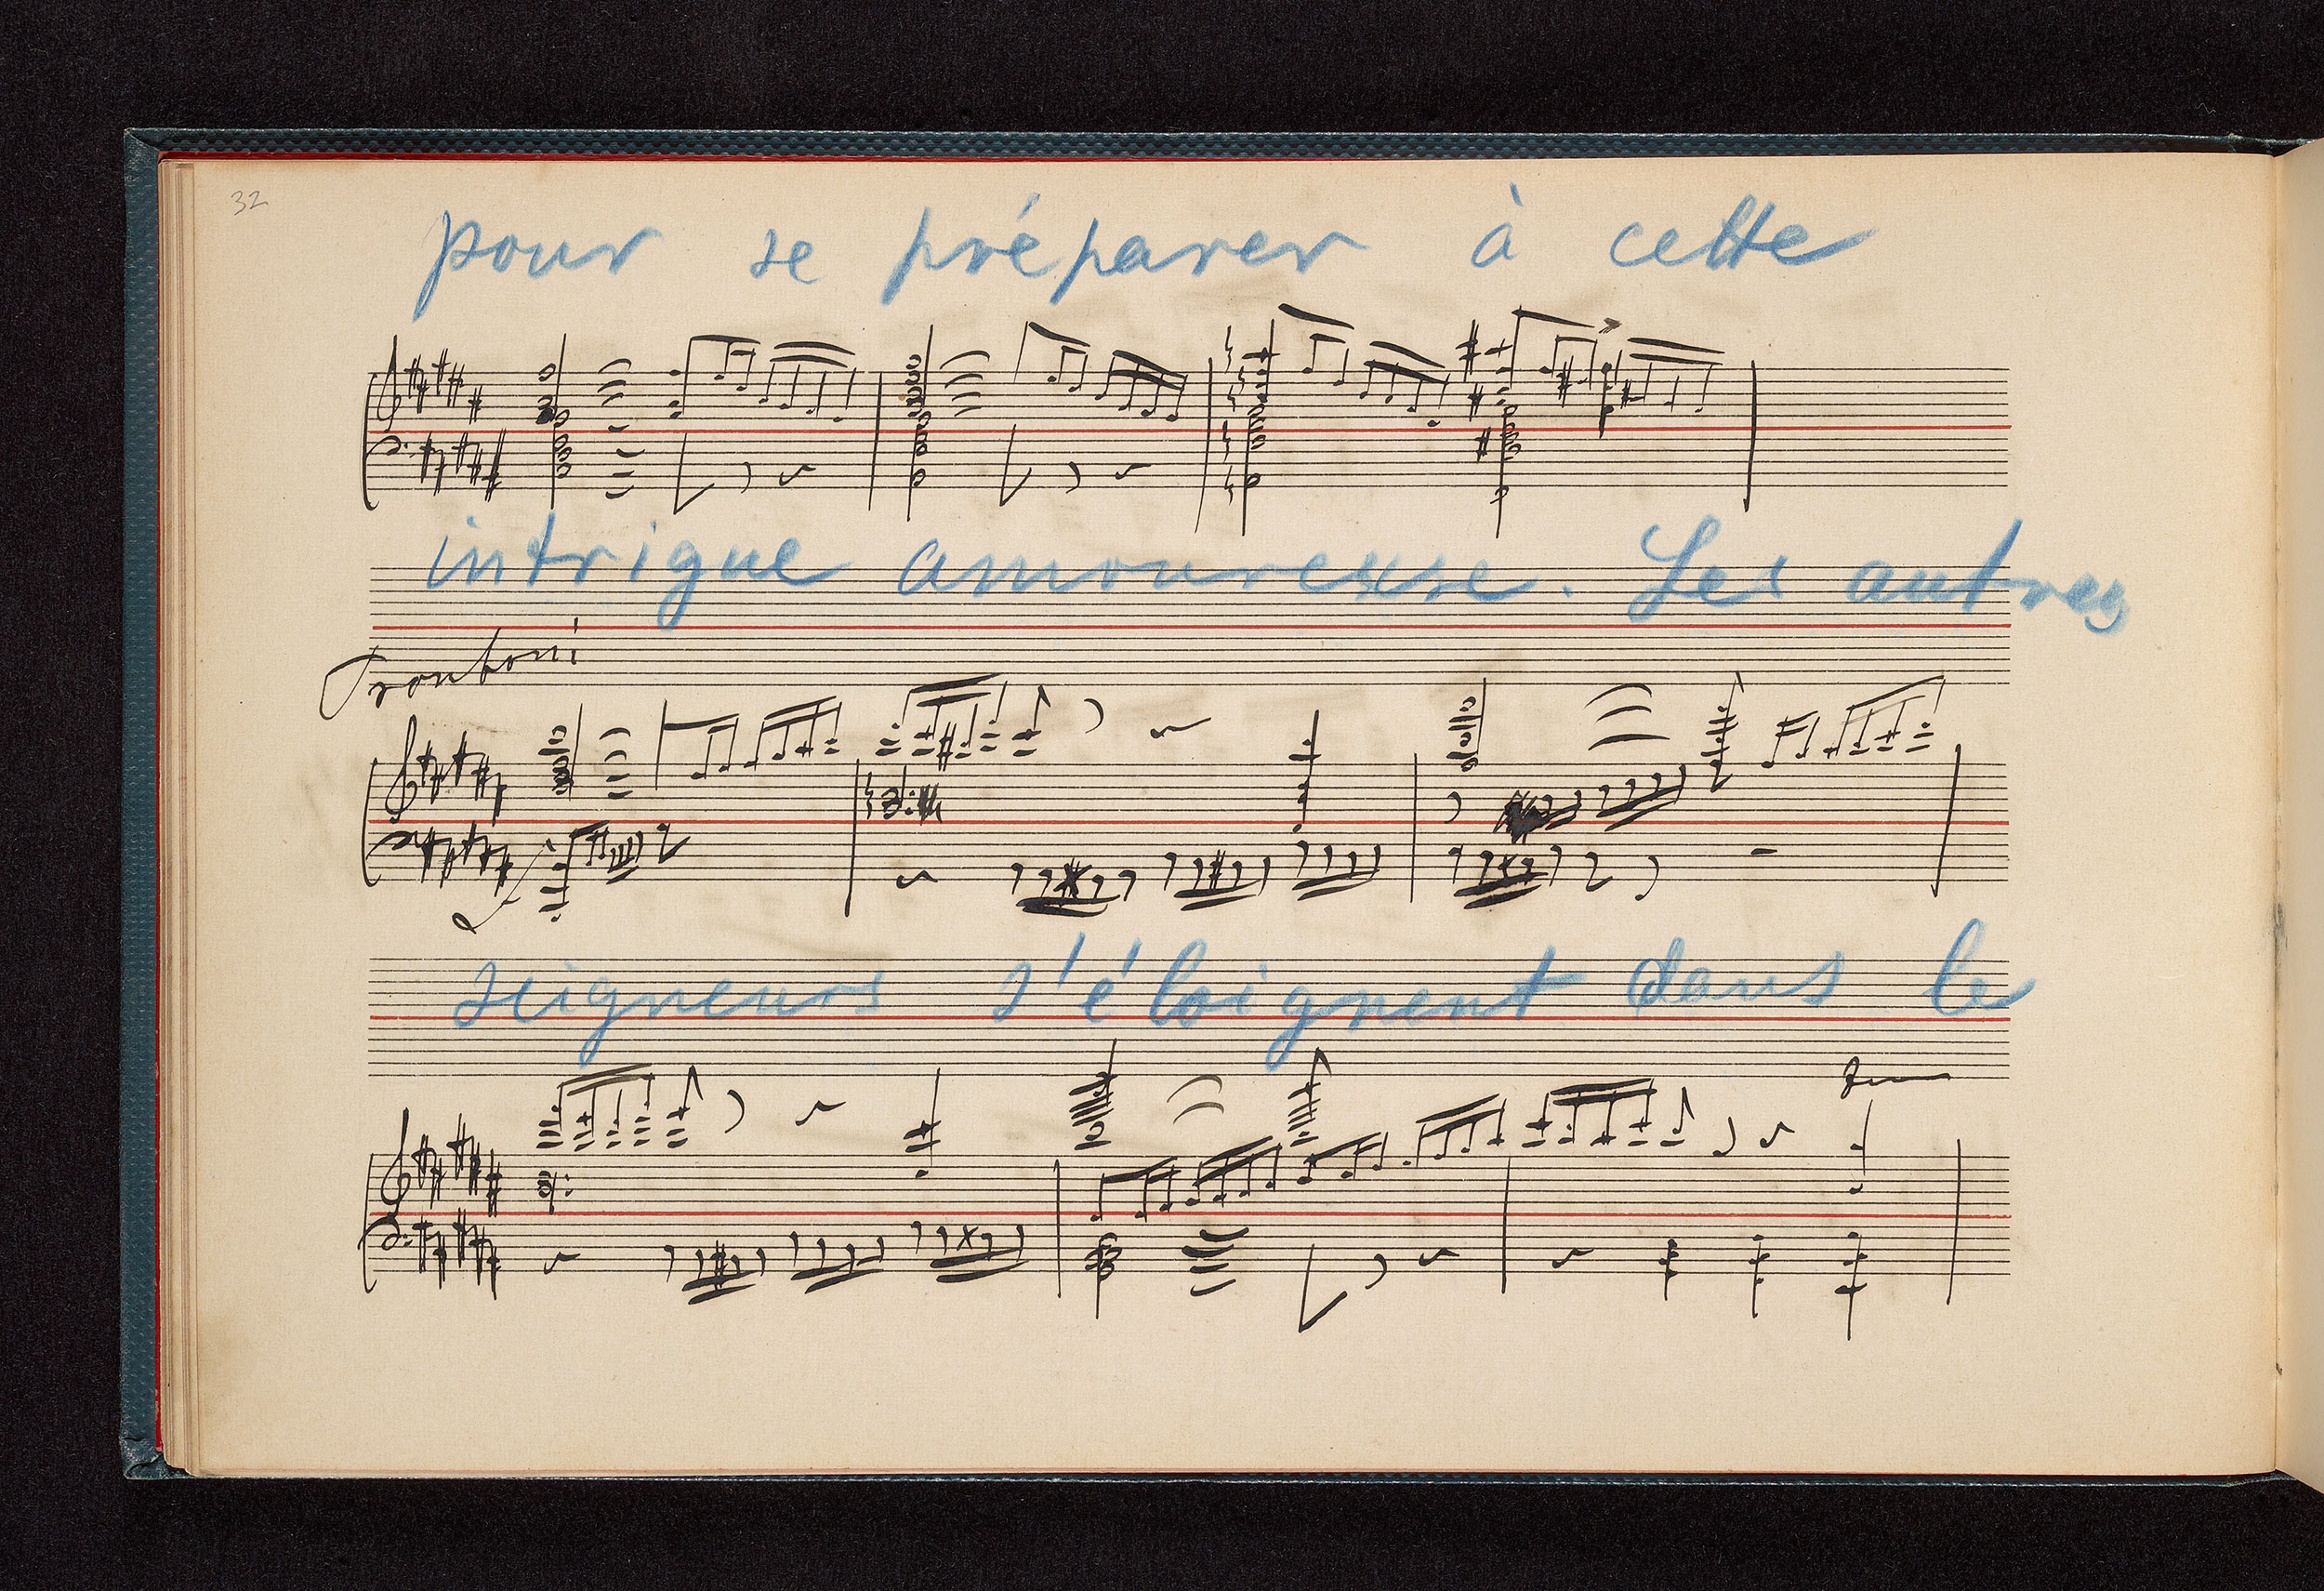 32
pour se préparer à cette
intrigue amoureuse. Les autres
Tromboni
seigneurs s'éloignent dans le